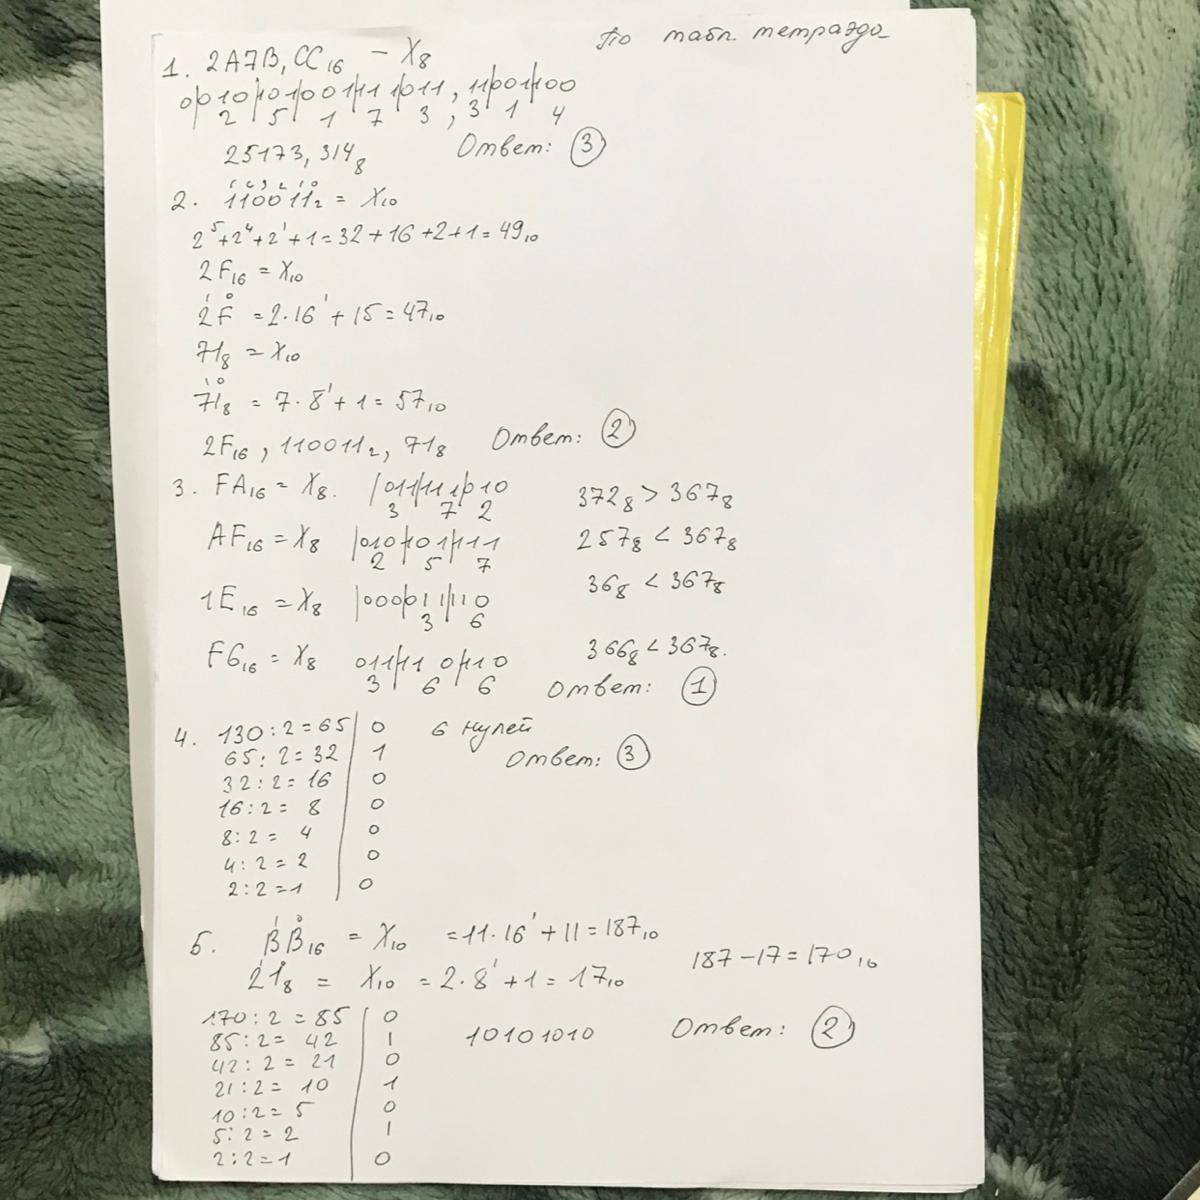 По табл. тетрад
1. 2A7B,CC₁₆ – X₈
0|010|101|001|111|011,110|011|00
2 5 1 7 3, 3 1 4
25173,314₈ Ответ: 3
5 4 3 2 1 0
2. 110011₂ = X₁₀
2⁵+2⁴+2¹+1=32+16+2+1=49₁₀
2F₁₆ = X₁₀
1 0
2F = 2·16¹+15=47₁₀
71₈ = X₁₀
1 0
71₈ = 7·8¹+1=57₁₀
2F₁₆, 110011₂, 71₈ Ответ: 2
3. FA₁₆ = X₈. |011|111|010 372₈ > 367₈
3 7 2
AF₁₆ = X₈ |010|101|111 257₈ < 367₈
2 5 7
1E₁₆ = X₈ |000|011|110 36₈ < 367₈
3 6
F6₁₆ = X₈ 011|110|110 366₈ < 367₈.
3 6 6 Ответ: 1
4. 130:2=65 | 0 6 нулей
65:2=32 | 1 Ответ: 3
32:2=16 | 0
16:2= 8 | 0
8:2= 4 | 0
4:2=2 | 0
2:2=1 | 0
1 0
5. BB₁₆ = X₁₀ =11·16¹+11=187₁₀
187-17=170₁₀
1 0
21₈ = X₁₀ = 2·8¹+1=17₁₀
170:2=85 | 0
85:2= 42 | 1 10101010 Ответ: 2
42:2= 21 | 0
21:2= 10 | 1
10:2= 5 | 0
5:2=2 | 1
2:2=1 | 0